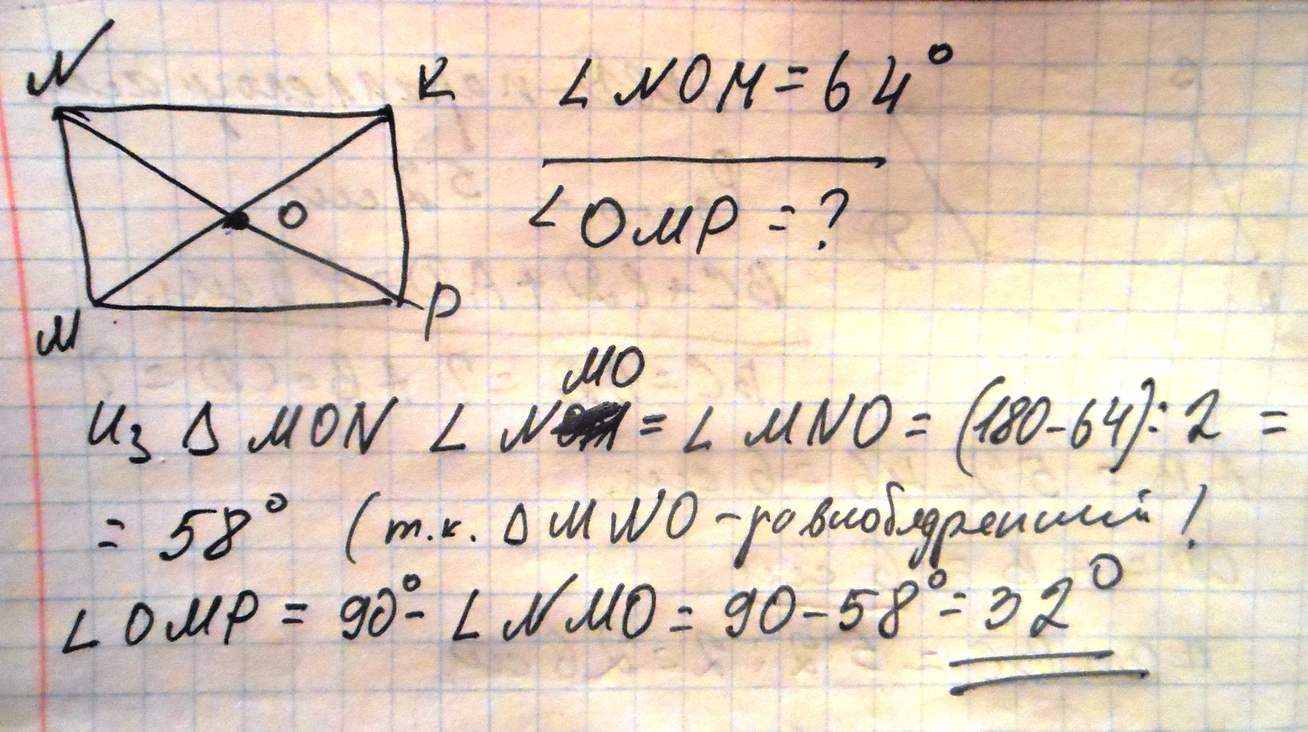 N K
∠NOM = 64°
O
∠OMP = ?
M P
Из Δ MON ∠ NMO = ∠ MNO = (180-64):2 =
= 58° (т.к. Δ MNO - равнобедренный)
∠ OMP = 90° - ∠ NMO = 90 - 58° = 32°